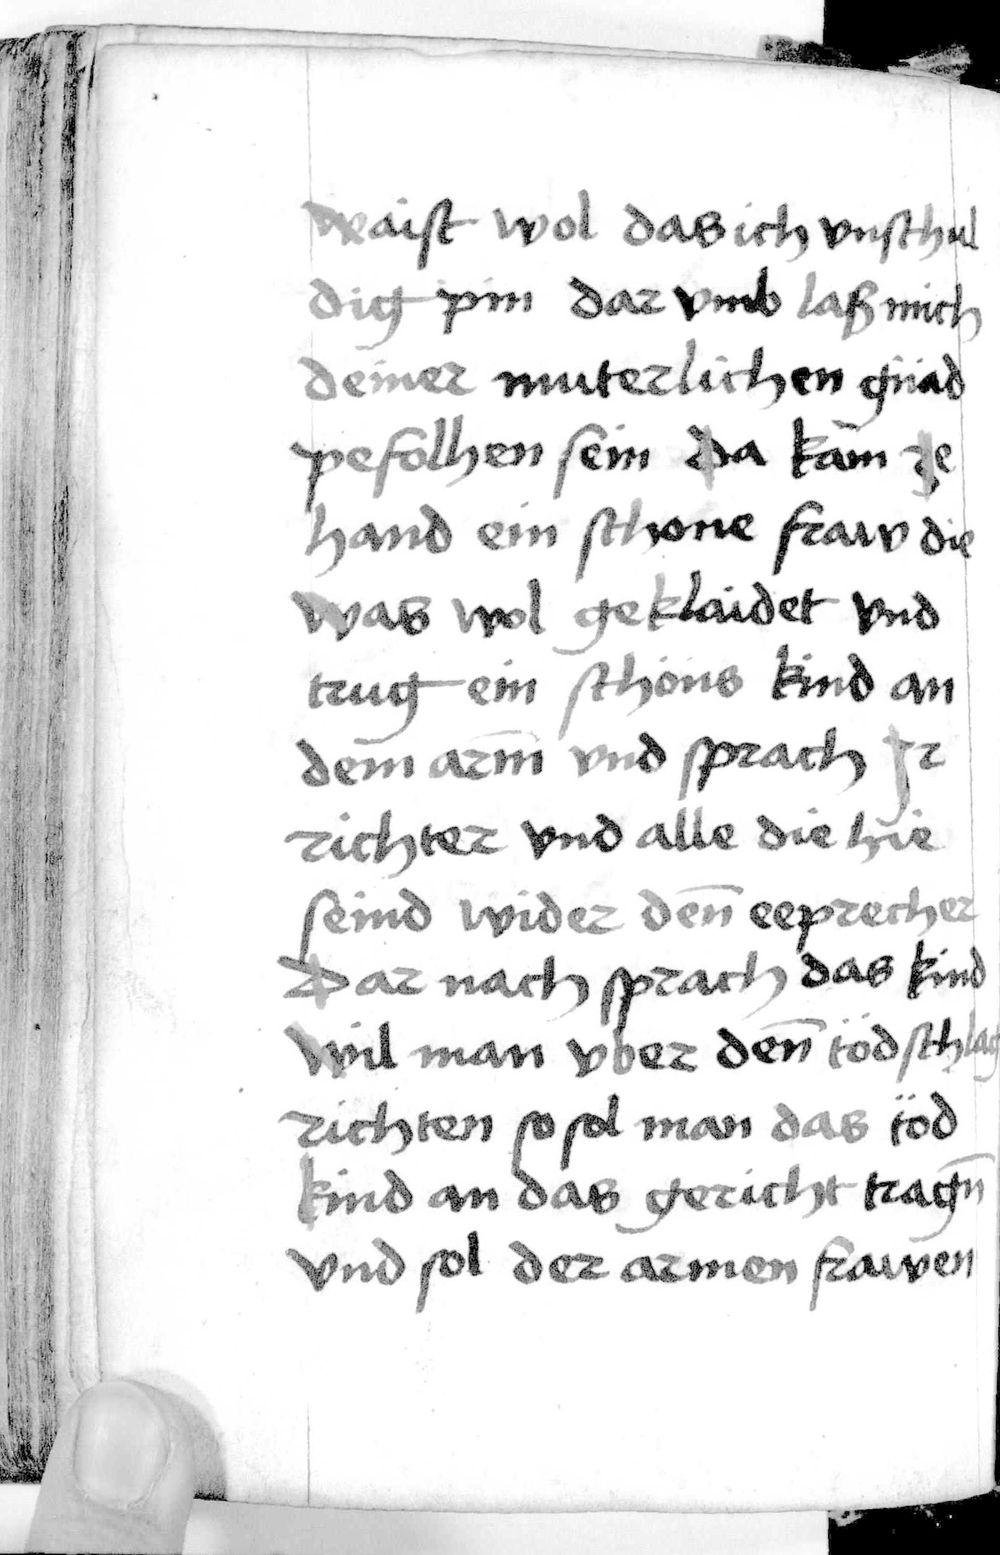 waist wol das ich vnschul
dig pin dar vmb laß mich
deiner muterlichen gnad
pefolhen sein Da kam ze
hand ein schone fraw die
was wol geklaidet vnd
trug ein schons kind an
dem̄ arm̄ vnd sprach Ir
richter vnd alle die hie
seind wider den̄ eeprecher
Dar nach sprach das kind
Wil man vber den̄ töd schlag
richten so sol man das töd
kind an das gericht tragn̄
vnd sol der armen frawen